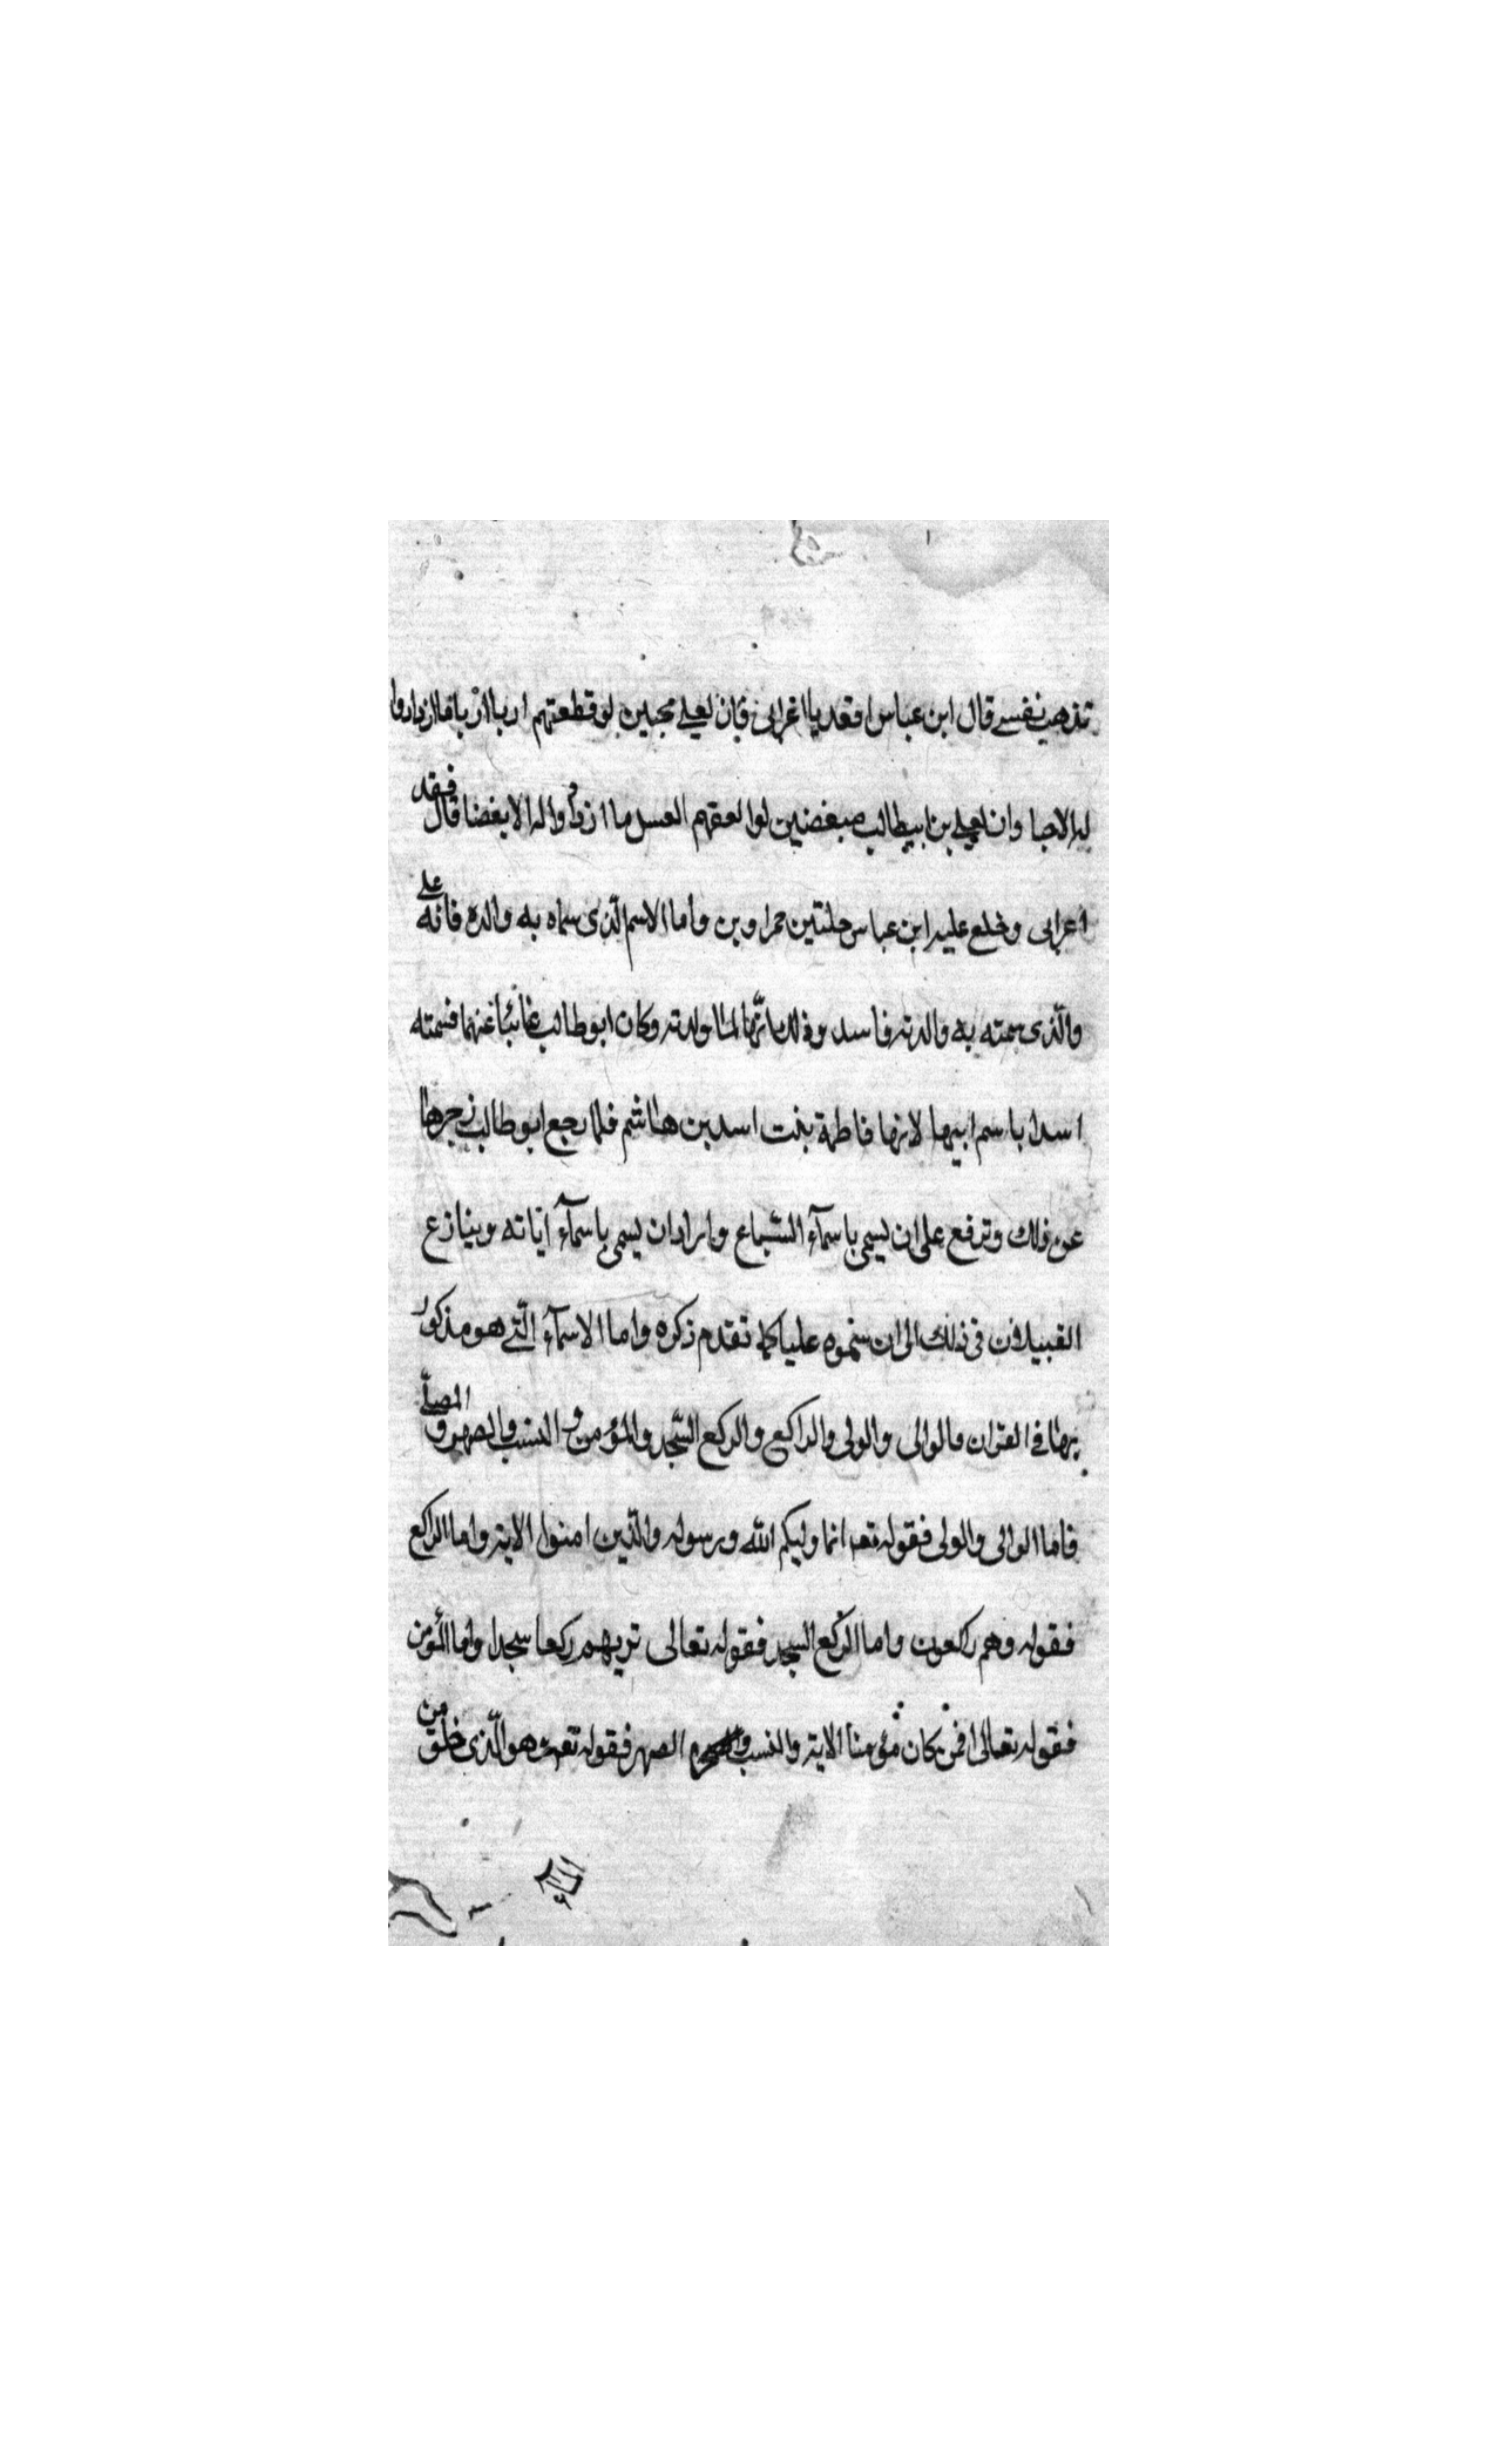 تذهب نفسي قال ابن عباس اقعد يا اغرابي فان لعلي محبين لو قطعتهم اربا اربا ما ازدادوا
له الاحبا وان لعلي بن ابيطالب مبغضين لو العقهم العسل ما ازدادوا له الا بغضا قال فقد
اعرابى وخلع عليه ابن عباس حلتين حمراوين واما الاسم الذى سماه به والده فانه على
والذى سمته به والدته فاسد وذلك انها لما ولدته وكان ابو طالب غائبا عنهما فسمته
اسدا باسم ابيها لانها فاطمة بنت اسد بن هاشم فلما رجع ابو طالب زجرها
عن ذلك وترفع على ان يسمى باسمآء السباع واراد ان يسمى باسمآء اباته وينازع
القبيلان فى ذلك الى ان سموه عليا كما تقدم ذكره واما الاسمآء التى هو مذكور
بها فى القران فالوالى والولى والراكع والركع السجد والمؤمن و النسب والصهر و المصلى
فاما الوالى والولى فقوله تعه انما وليكم الله ورسوله والذين امنوا الاية واما الراكع
فقوله وهم راكعون واما الركع السجد فقوله تعالى تريهم ركعا سجدا واما المؤمن
فقوله تعالى افمن كان مؤمنا الاية والنسب و الصهر فقوله تعه هو الذى خلق من